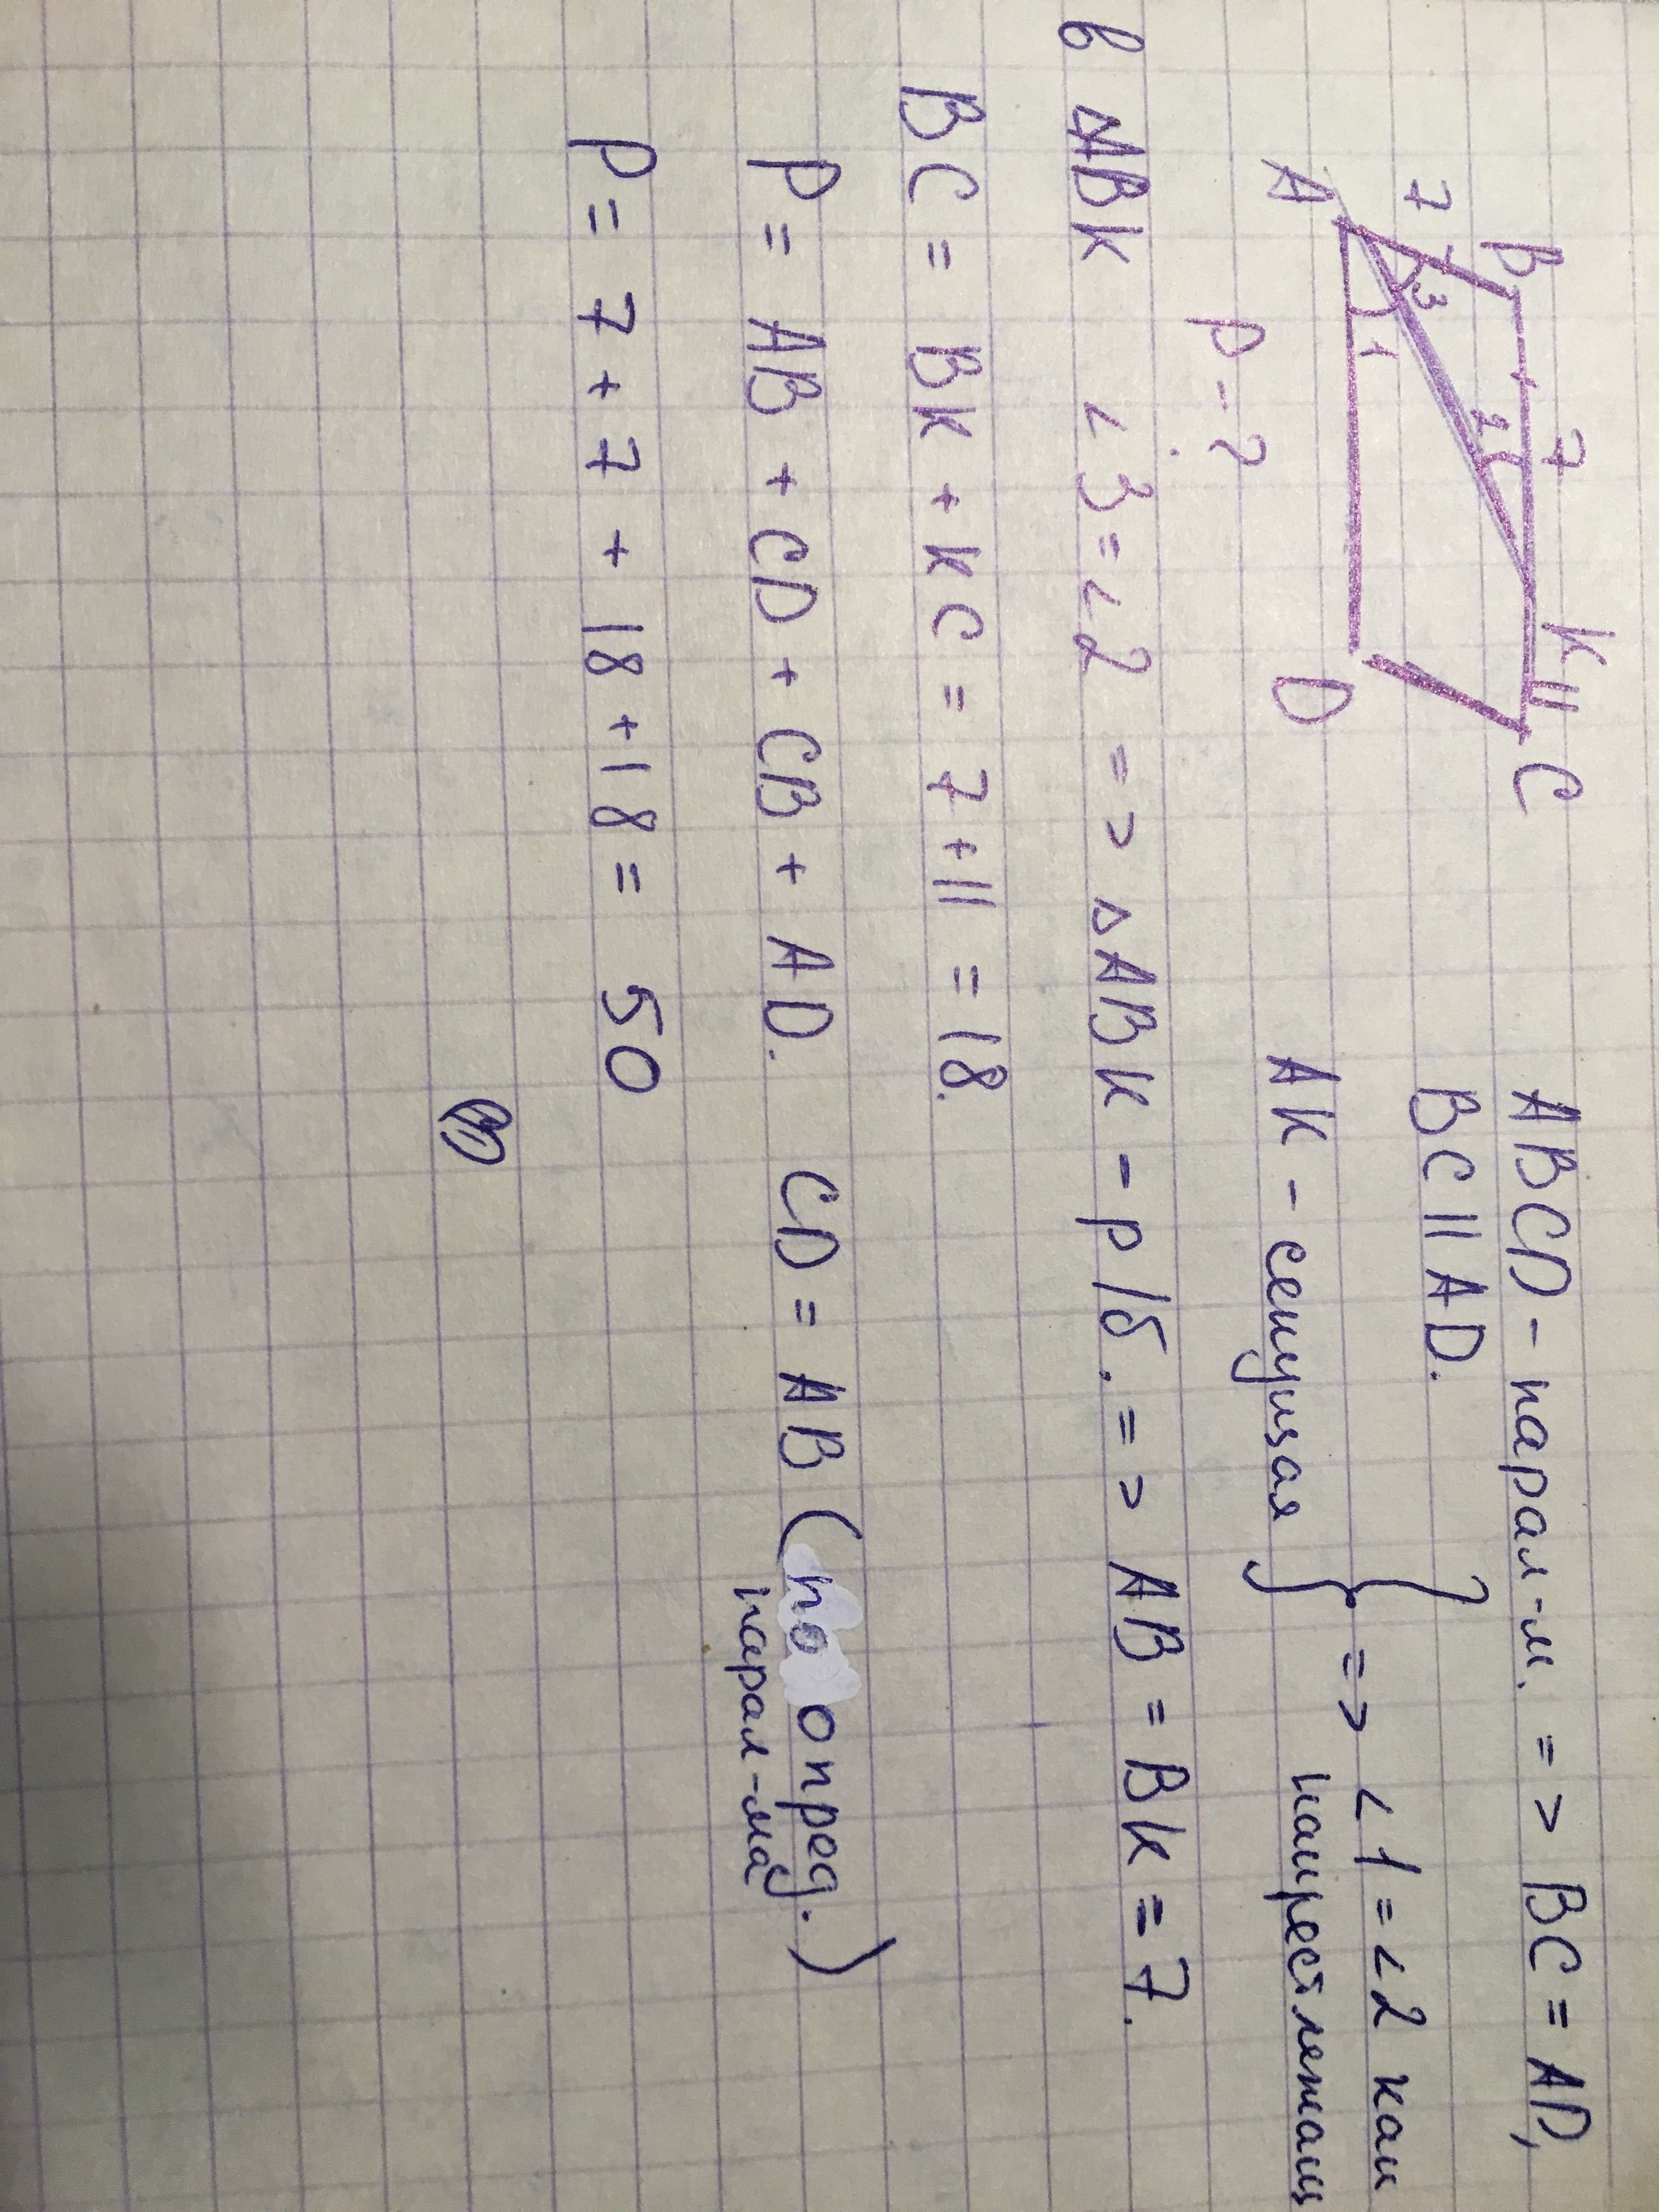 B 7 K 11 C
7 3 2
A 1 D
P - ?
ABCD - парал-м. => BC = AD,
BC || AD.
AK - секущая } => ∠1 = ∠2 как
накрест лежащ
в △ABK ∠3 = ∠2 => △ABK - р/б. => AB = BK = 7.
BC = BK + KC = 7 + 11 = 18.
P = AB + CD + CB + AD. CD = AB (по опред.)
парал-ма
P = 7 + 7 + 18 + 18 = 50